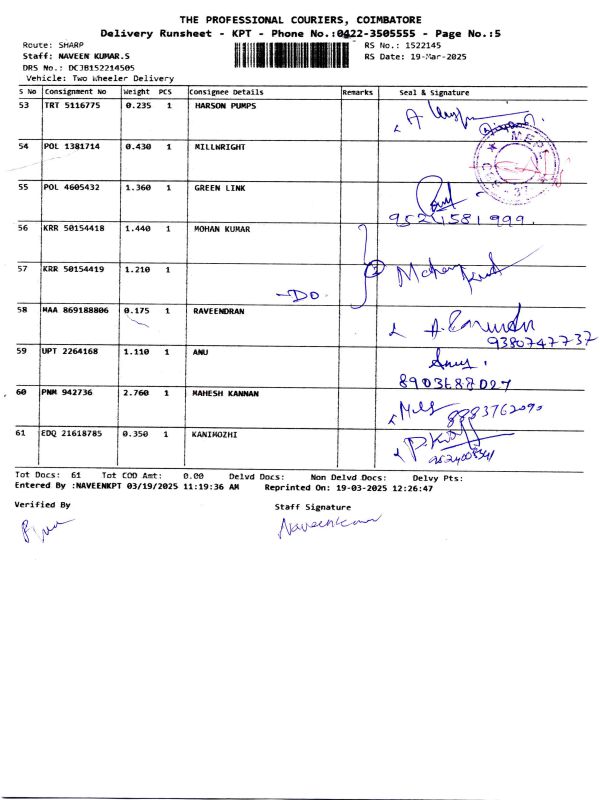 THE PROFESSIONAL COURIERS, COIMBATORE
Delivery Runsheet - KPT - Phone No.:0422-3505555 - Page No.:5
Route: SHARP RS No.: 1522145
Staff: NAVEEN KUMAR.S RS Date: 19-Mar-2025
DRS No.: DCJB152214505
Vehicle: Two Wheeler Delivery
S No Consignment No Weight PCS Consignee Details Remarks Seal & Signature
53 TRT 5116775 0.235 1 HARSON PUMPS
54 POL 1381714 0.430 1 MILLWRIGHT
55 POL 4605432 1.360 1 GREEN LINK
56 KRR 50154418 1.440 1 MOHAN KUMAR
57 KRR 50154419 1.210 1 -DO-
58 MAA 869188806 0.175 1 RAVEENDRAN
9380747737
59 UPT 2264168 1.110 1 ANU
8903687027
60 PNM 942736 2.760 1 MAHESH KANNAN
61 EDQ 21618785 0.350 1 KANIMOZHI
Tot Docs: 61 Tot COD Amt: 0.00 Delvd Docs: Non Delvd Docs: Delvy Pts:
Entered By :NAVEENKPT 03/19/2025 11:19:36 AM Reprinted On: 19-03-2025 12:26:47
Verified By Staff Signature
Naveenkumar